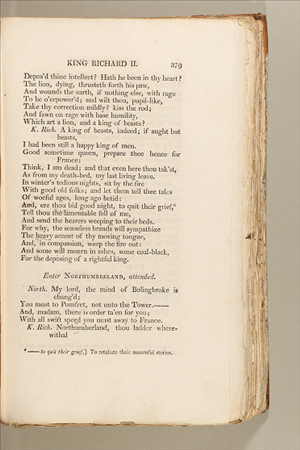 KING RICHARD II. 379
Depos'd thine intellect? Hath he been in thy heart?
The lion, dying, thrusteth forth his paw,
And wounds the earth, if nothing else, with rage
To be o'erpower'd; and wilt thou, pupil-like,
Take thy correction mildly? kiss the rod;
And fawn on rage with base humility,
Which art a lion, and a king of beasts?
K. Rich. A king of beasts, indeed; if aught but
beasts,
I had been still a happy king of men.
Good sometime queen, prepare thee hence for
France:
Think, I am dead; and that even here thou tak'st,
As from my death-bed, my last living leave.
In winter's tedious nights, sit by the fire
With good old folks; and let them tell thee tales
Of woeful ages, long ago betid:
And, ere thou bid good night, to quit their grief,⁶
Tell thou the lamentable fall of me,
And send the hearers weeping to their beds.
For why, the senseless brands will sympathize
The heavy accent of thy moving tongue,
And, in compassion, weep the fire out:
And some will mourn in ashes, some coal-black,
For the deposing of a rightful king.
Enter NORTHUMBERLAND, attended.
North. My lord, the mind of Bolingbroke is
chang'd;
You must to Pomfret, not unto the Tower.—
And, madam, there is order ta'en for you;
With all swift speed you must away to France.
K. Rich. Northumberland, thou ladder where-
withal
⁶ —— to quit their grief,] To retaliate their mournful stories.